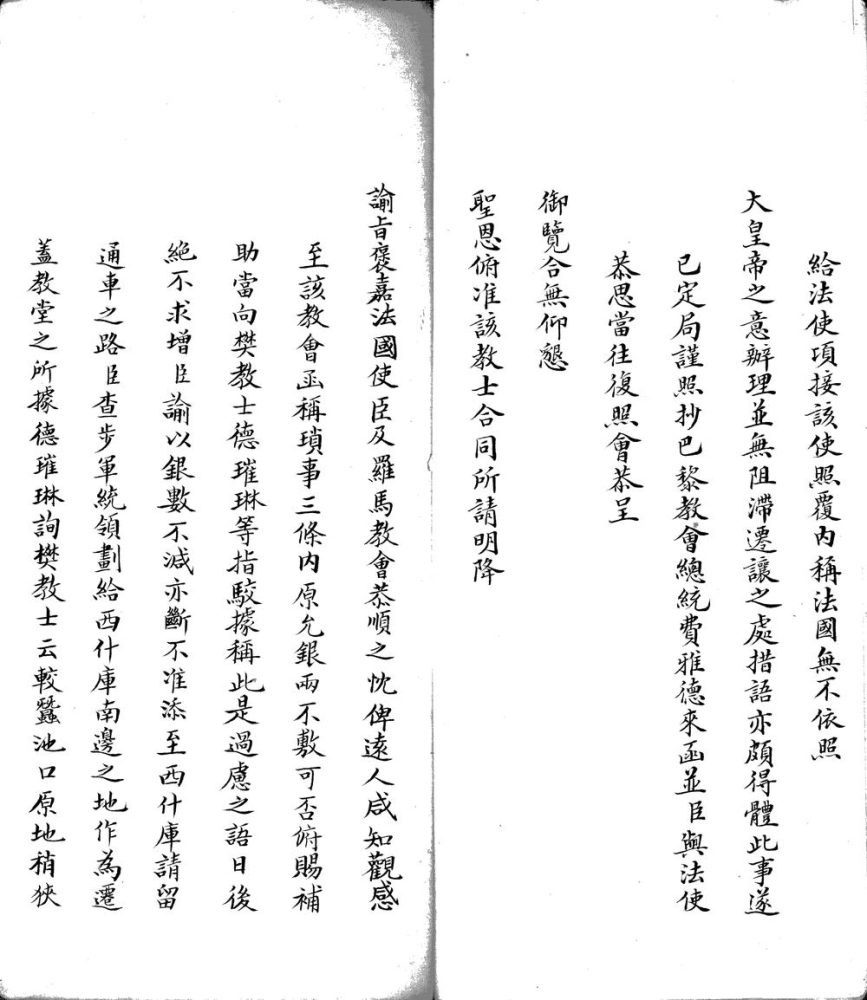 給法使項接該使照覆內稱法國無不依照
大皇帝之意辦理並無阻滯遷讓之處措語亦頗得體此事遂
已定局謹照抄巴黎教會總統費雅德來函並臣與法使
恭思當往復照會恭呈
御覽合無仰懇
聖恩俯准該教士合同所請明降
諭旨褒嘉法國使臣及羅馬教會恭順之忱俾遠人咸知觀感
至該教會函稱瑣事三條內原允銀兩不敷可否俯賜補
助當向樊教士德璀琳等指駮據稱此是過慮之語日後
絕不求增臣諭以銀數不減亦斷不准添至西什庫請留
通車之路臣查步軍統領劃給西什庫南邊之地作為遷
蓋教堂之所據德璀琳詢樊教士云較蠶池口原地稍狹